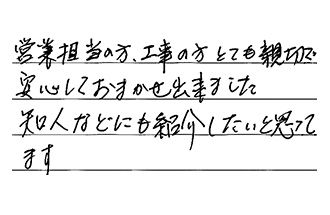 営業担当の方、工事の方とても親切で
安心しておまかせ出来ました
知人などにも紹介したいと思って
ます